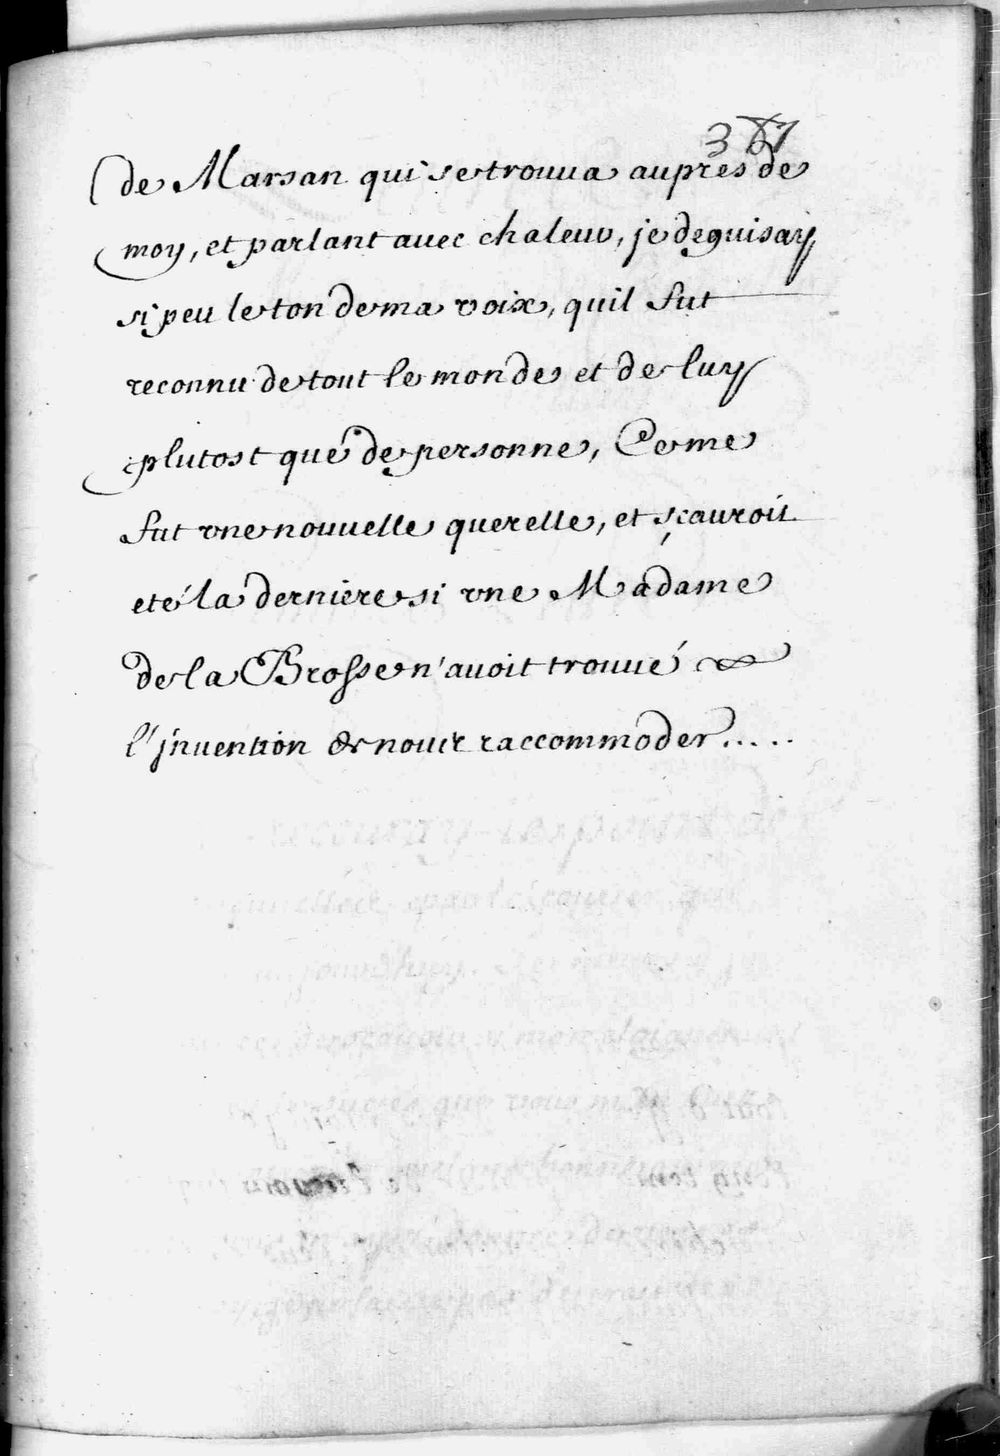 de Marsan qui se trouua aupres de
moy, et parlant auec chaleur, je deguisay
si peu le ton de ma voix, quil fut
reconnu de tout le monde et de luy
plutost que de personne, Ce me
fut vne nouuelle querelle, et sçauroit
eté la derniere si vne Madame
de la Brosse n'auoit trouué
l'jnuention de nous raccommoder.....